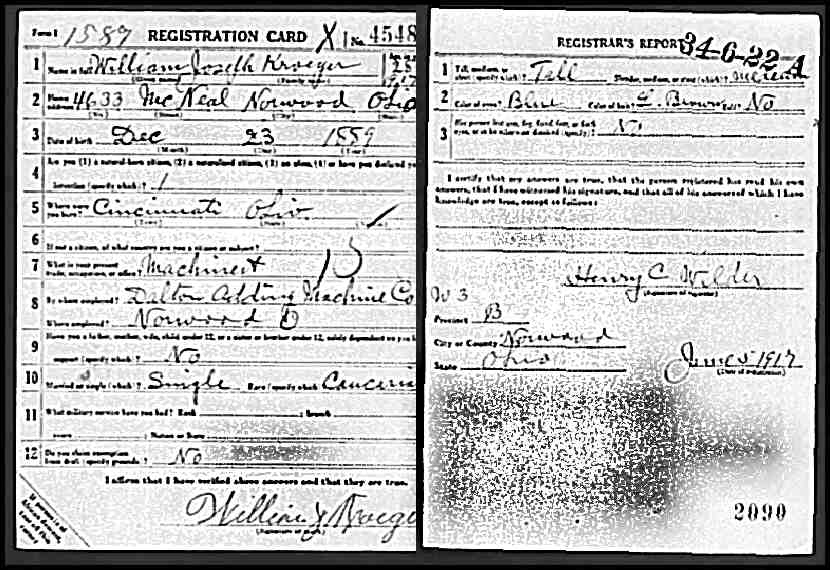 Form 1 1587 REGISTRATION CARD No. 4548
1 Name in full William Joseph Kroeger
(Given name) (Family name)
2 Home address 4633 McNeal Norwood Ohio
(No.) (Street) (City)
3 Date of birth Dec 23 1889
(Month) (Day) (Year)
Are you (1) a natural-born citizen, (2) a naturalized citizen, (3) an alien, (4) or have you declared your
4 intention (specify which)? 1
5 Where were you born? Cincinnati Ohio
(Town) (State)
6 If not a citizen, of what country are you a citizen or subject?
7 What is your present trade, occupation, or office? Machinest
8 By whom employed? Dalton Adding Machine Co
Where employed? Norwood O
9 Have you a father, mother, wife, child under 12, or a sister or brother under 12, solely dependent on you
support (specify which)? No
10 Married or single (which)? Single Race (specify which)
11 What military service have you had? Rank ; Branch
years ; Nation or State
12 Do you claim exemption from draft (specify grounds)? No
I affirm that I have verified above answers and that they are true.
William J Kroege
REGISTRAR'S REPORT 34-6-22 A
1 Tall, medium, or short (specify which)? Tall Slender, medium, or stout (which)?
2 Color of eyes? Blue Color of hair? Brown Bald? No
3 Has person lost arm, leg, hand, foot, or both eyes, or is he otherwise disabled (specify)? No
I certify that my answers are true, that the person registered has read his own
answers, that I have witnessed his signature, and that all of his answers of which I have
knowledge are true, except as follows:
Henry C. Wilder
(Signature of registrar)
W 3
Precinct B
City or County Norwood
State Ohio
June 5 1917
(Date of registration)
2090